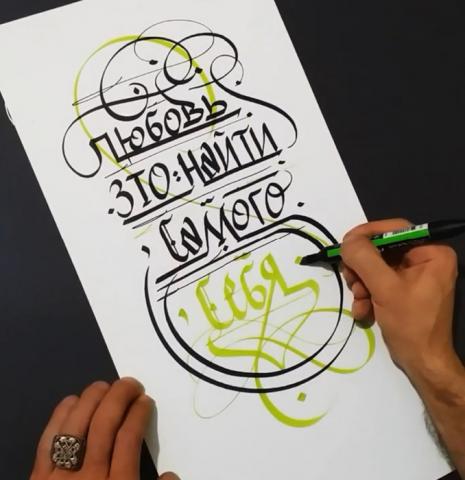 Любовь
это: найти
самого
себя